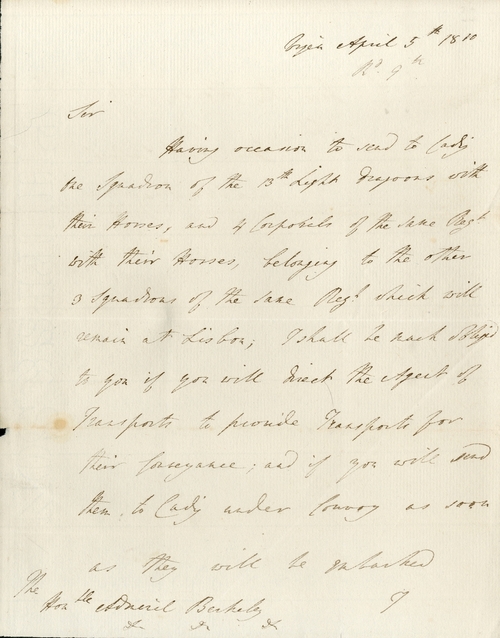 Viseu April 5th 1810
Rd. 9th.
Sir
Having occasion to send to Cadiz
one Squadron of the 13th Light Dragoons with
their Horses, and 4 Corporals of the same Regt
with their Horses, belonging to the other
3 Squadrons of the same Regt which will
remain at Lisbon; I shall be much obliged
to you if you will direct the Agent of
Transports to provide Transports for
their conveyance; and if you will send
them to Cadiz under Convoy as soon
as they will be embarked
The
Honble Admiral Berkeley
&c &c &c